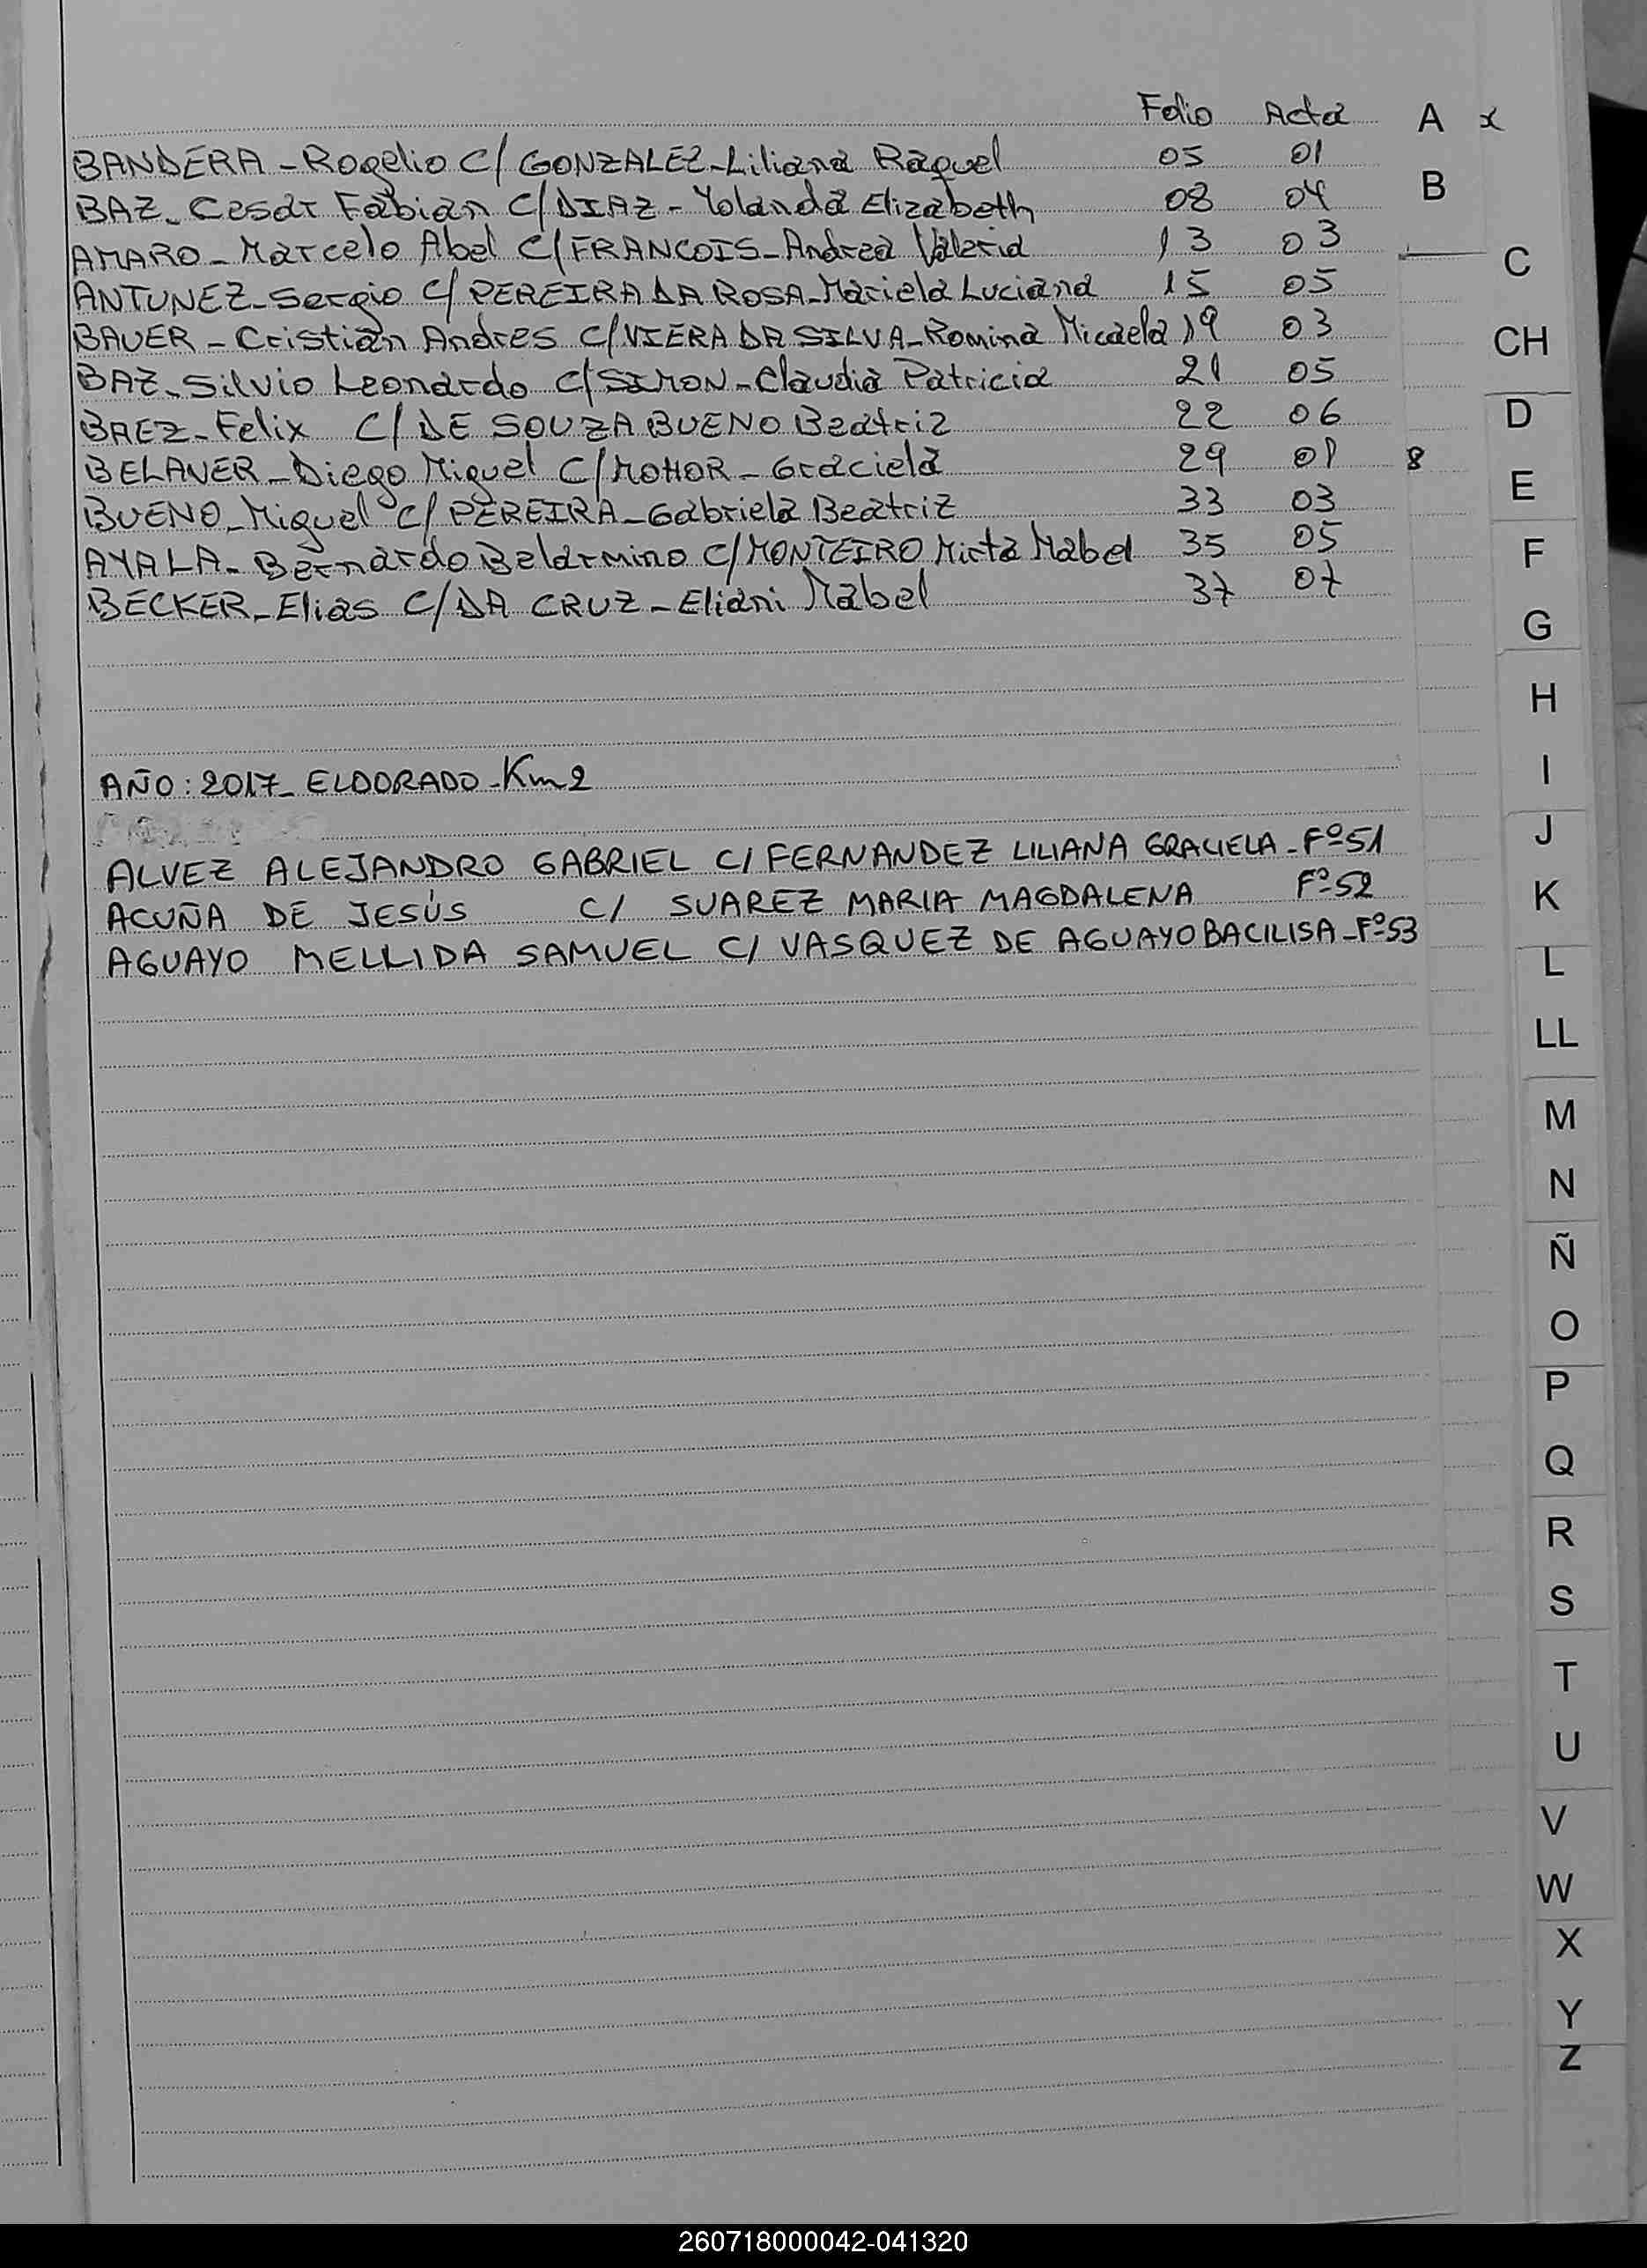 Folio Acta A x
BANDERA - Rogelio C/ GONZALEZ - Liliana Raquel 05 01
BAZ - Cesar Fabian C/ DIAZ - Yolanda Elizabeth 08 04 B
AMARO - Marcelo Abel C/ FRANCOIS - Andrea Valeria 13 03 C
ANTUNEZ - Sergio C/ PEREIRA DA ROSA - Mariela Luciana 15 05
BAUER - Cristian Andres C/ VIERA DA SILVA - Romina Micaela 19 03 CH
BAZ - Silvio Leonardo C/ SIMON - Claudia Patricia 21 05
BAEZ - Felix C/ DE SOUZA BUENO Beatriz 22 06 D
BELAVER - Diego Miguel C/ MOHOR - Graciela 29 01 8
BUENO - Miguel C/ PEREIRA - Gabriela Beatriz 33 03 E
AYALA - Bernardo Belarmino C/ MONTEIRO Mirta Mabel 35 05 F
BECKER - Elias C/ DA CRUZ - Eliani Mabel 37 07
G
H
AÑO: 2017 - ELDORADO - Km 2 I
J
ALVEZ ALEJANDRO GABRIEL C/ FERNANDEZ LILIANA GRACIELA - Fº 51
ACUÑA DE JESÚS C/ SUAREZ MARIA MAGDALENA Fº 52 K
AGUAYO MELLIDA SAMUEL C/ VASQUEZ DE AGUAYO BACILISA - Fº 53
L
LL
M
N
Ñ
O
P
Q
R
S
T
U
V
W
X
Y
Z
260718000042-041320